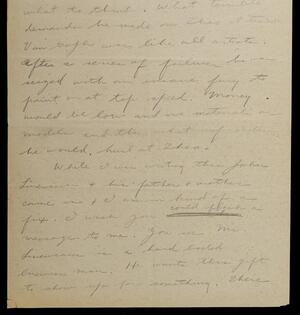 what to think. What terrible
demands he made on Theo it
Van Gogh was like all artists.
After a series of failures he is
seized with our insane fury to
paint on at top speed. Money
would be low and no materials or
models and then what
he would hurl at Theo.
While I was writing this John
& his father & mother
came in & I am in
could
fix. I wish you
message to me. You see Mr
is a hard boiled
business man. He wants this gift
to show up for something. There